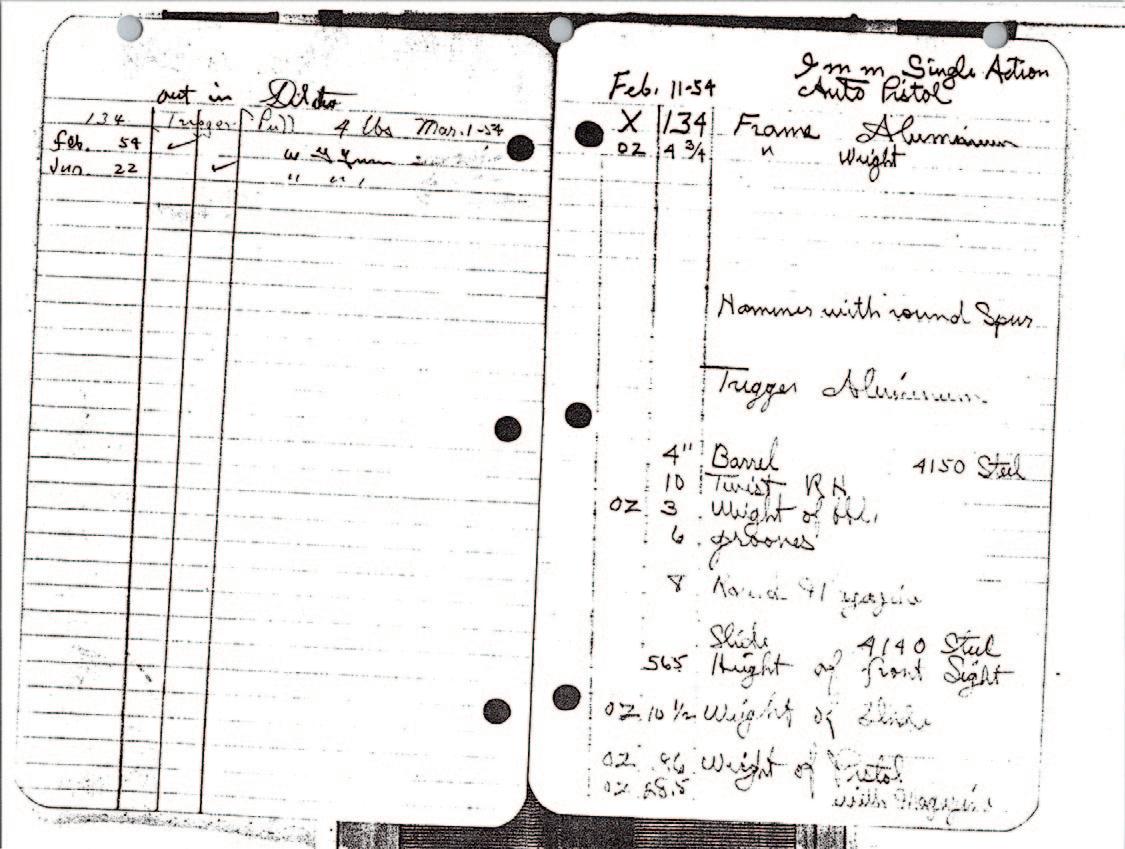 out in
134 Trigger Pull 4 lbs Mar. 1-54
Feb. 54 ✓
Jun. 22 ✓ " " "
Feb. 11-54
9 mm Single Action
Auto Pistol
X 134 Frame Aluminum
OZ 4 3/4 " Weight
Hammer with round Spur
Trigger Aluminum
4" Barrel 4150 Steel
10 Twist RH
OZ 3 Weight of bbl.
6 grooves
8 Round Magazine
Slide 4140 Steel
.565 Height of front Sight
OZ 10 1/2 Weight of Slide
OZ Weight of Pistol
OZ with Magazine